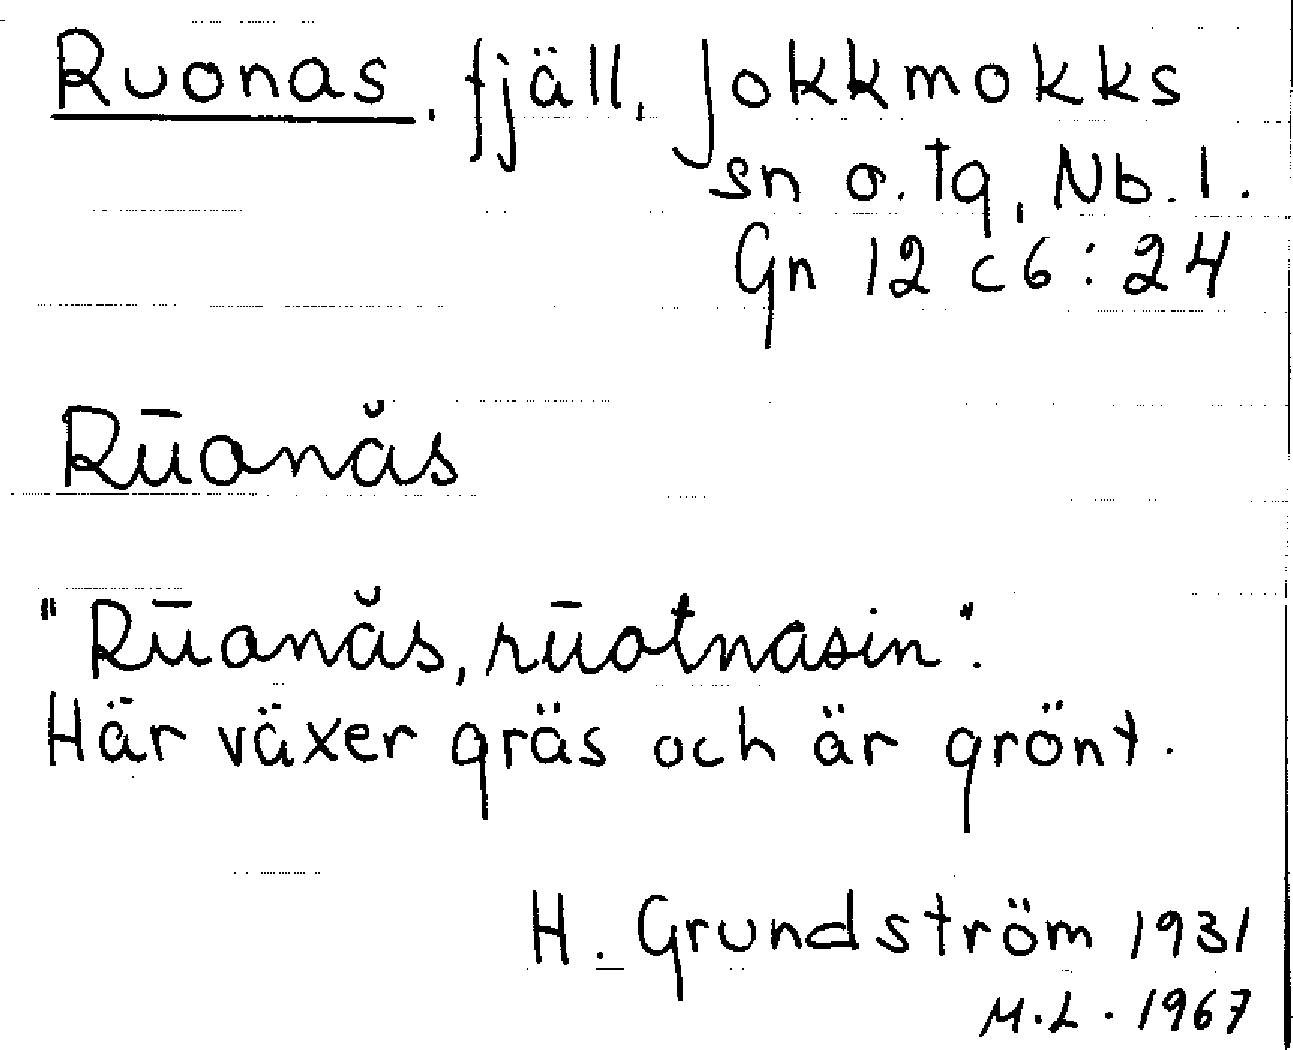 Ruonas, fjäll, Jokkmokks
sn o. tg, Nb. l.
Gn 12 c 6 : 24
Rūonăs
"Rūonăs, rūotnasin".
Här växer gräs och är grönt.
H. Grundström 1931
M.L. 1967